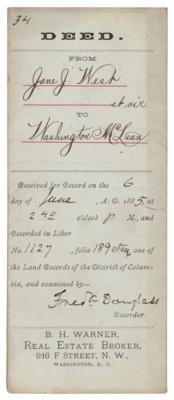 34
DEED.
FROM
Jane J. West
et vir
TO
Washington McLean
Received for Record on the 6
day of June, A. D. 1885, at
2 40 o'clock P M., and
Recorded in Liber
No. 1127, folio 189 et seq., one of
the Land Records of the District of Colum-
bia, and examined by—
Fredk Douglass
Recorder.
B. H. WARNER,
REAL ESTATE BROKER,
916 F STREET, N. W.,
WASHINGTON, D. C.